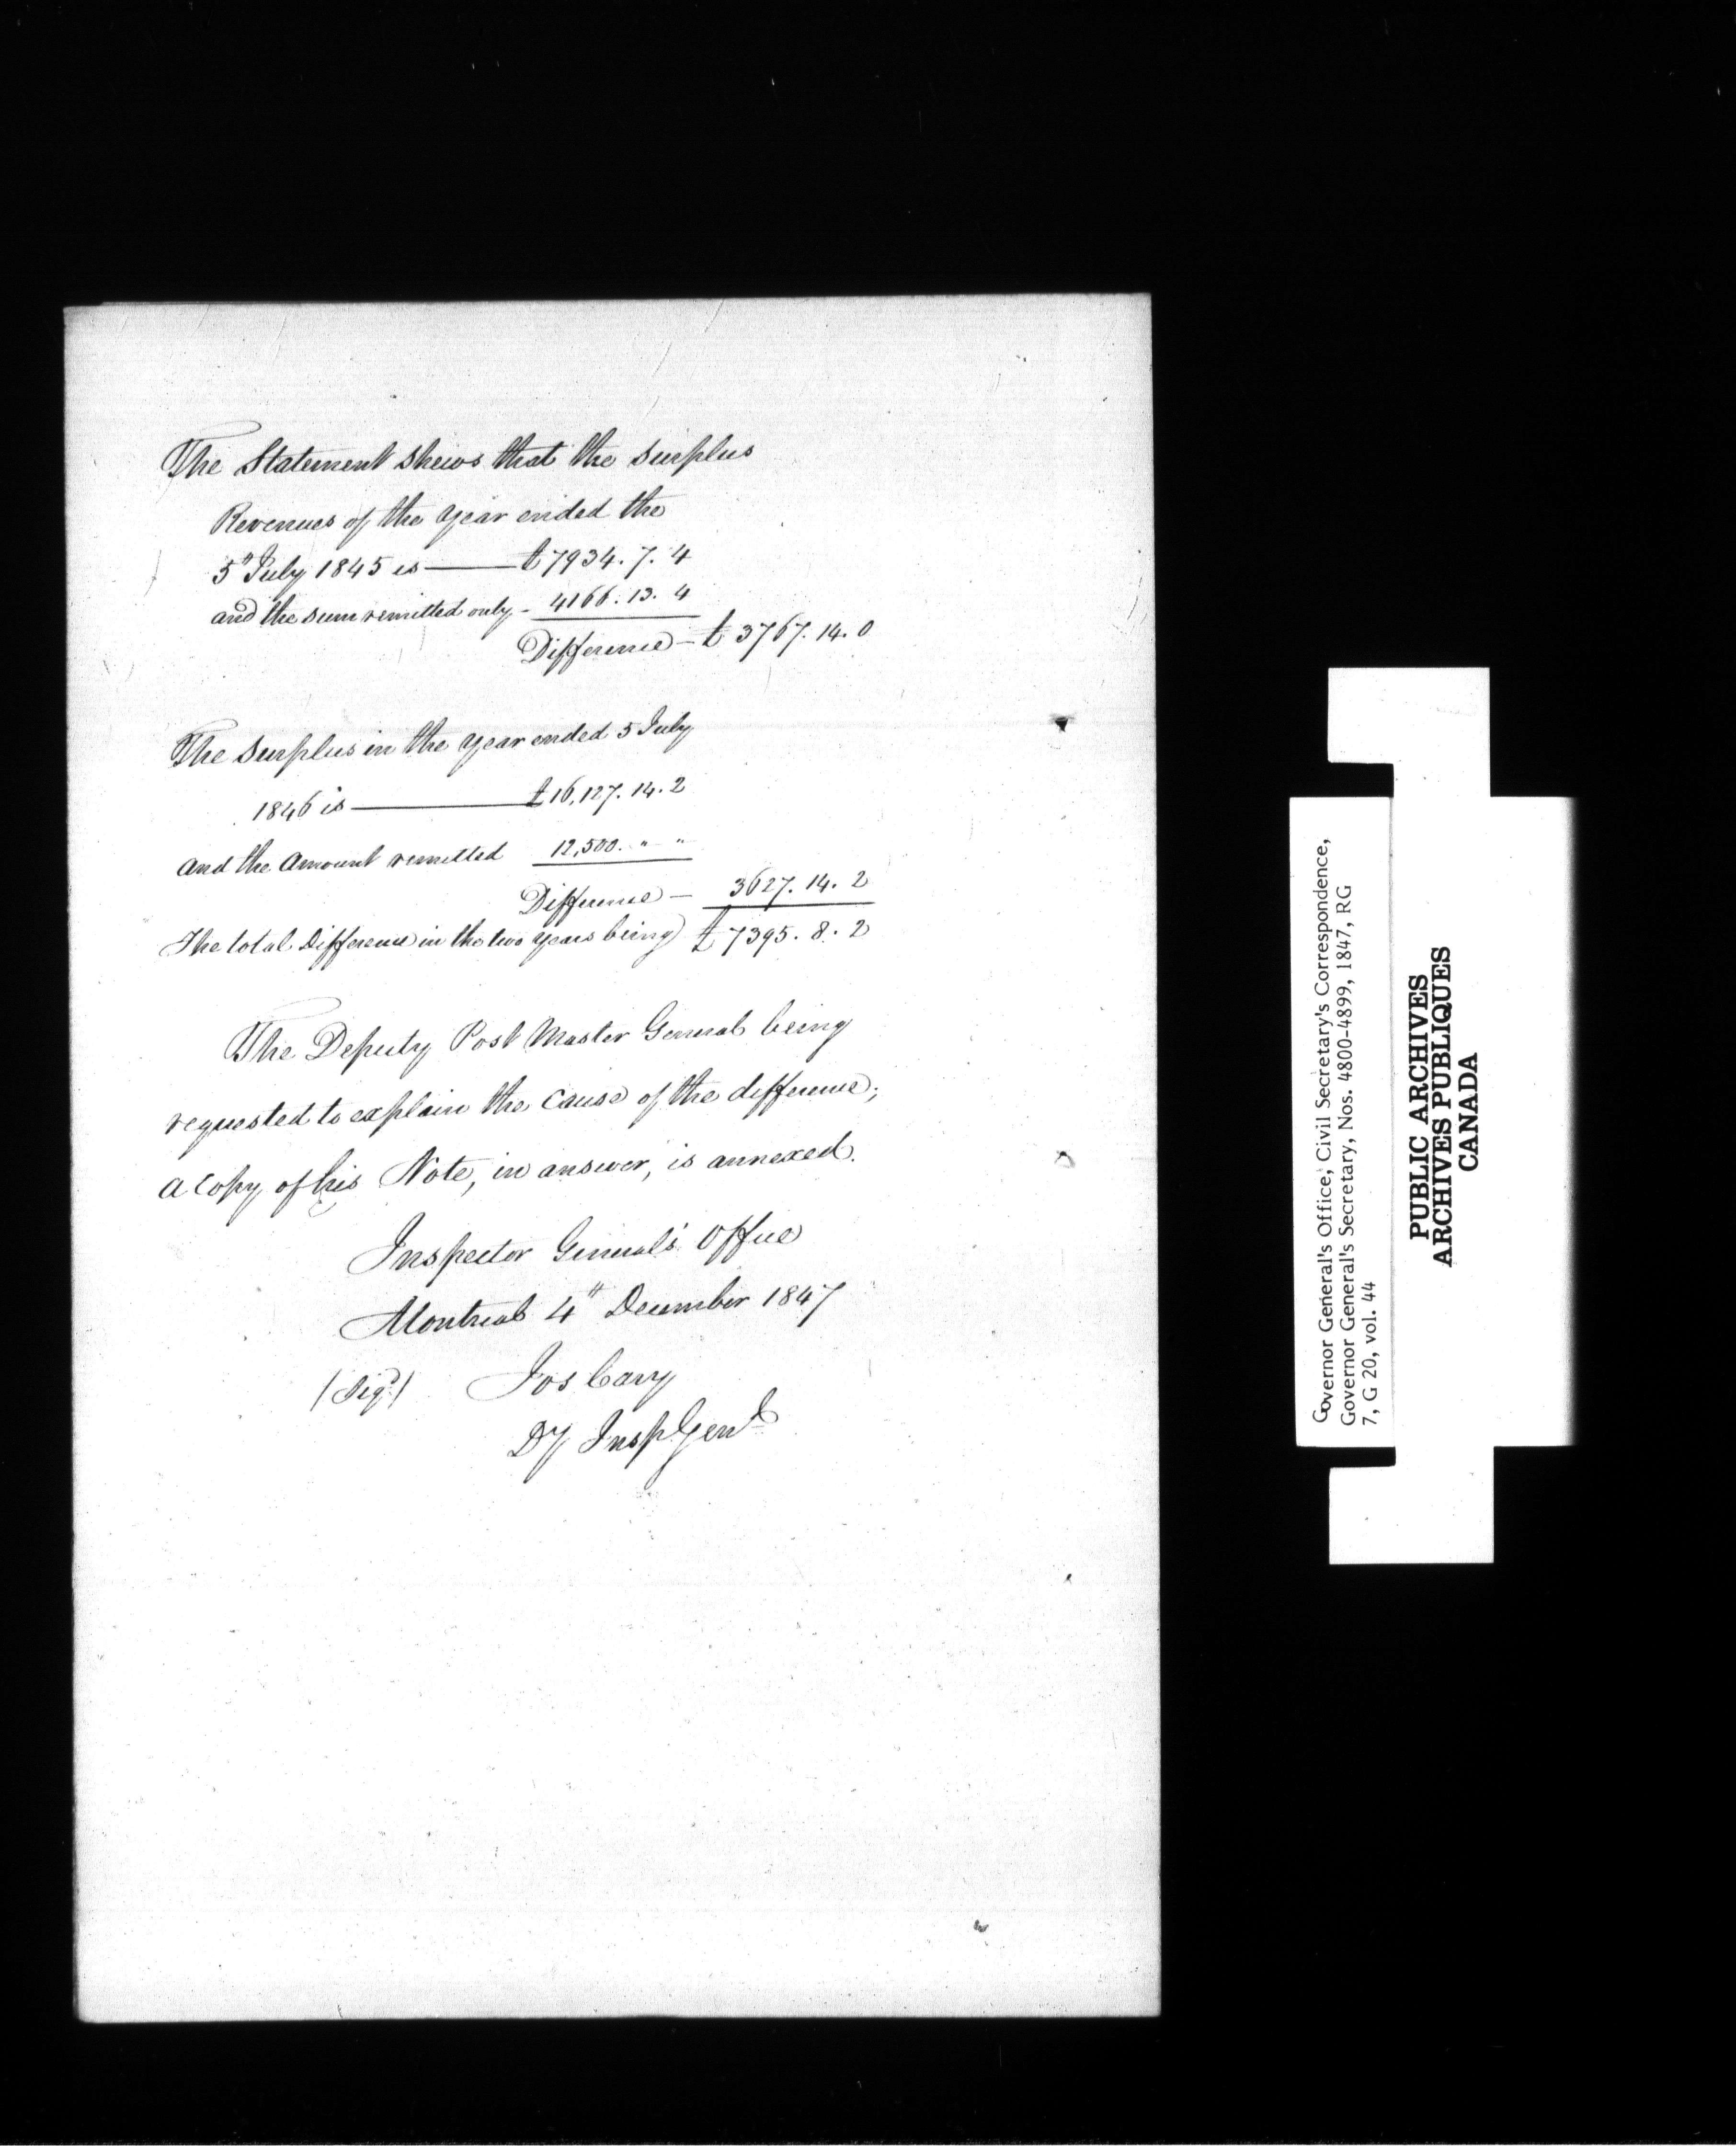 The Statement shews that the surplus
Revenues of the year ended the
5th July 1845 is — £7934. 7. 4
and the sum remitted only - 4166. 13. 4
Difference — £ 3767. 14. 0
The surplus in the year ended 5 July
1846 is — £16,127. 14. 2
and the amount remitted 12,500. " "
Difference — 3627. 14. 2
The total difference in the two years being £7395. 8. 2
The Deputy Post Master General being
requested to explain the cause of the difference;
a copy of his Note, in answer, is annexed.
Inspector General's Office
Montreal 4th December 1847
(Sigd.) Jos Cary
Dy Insp Genl
Governor General's Office; Civil Secretary's Correspondence,
Governor General's Secretary, Nos. 4800-4899, 1847, RG
7, G 20, vol. 44
PUBLIC ARCHIVES
ARCHIVES PUBLIQUES
CANADA